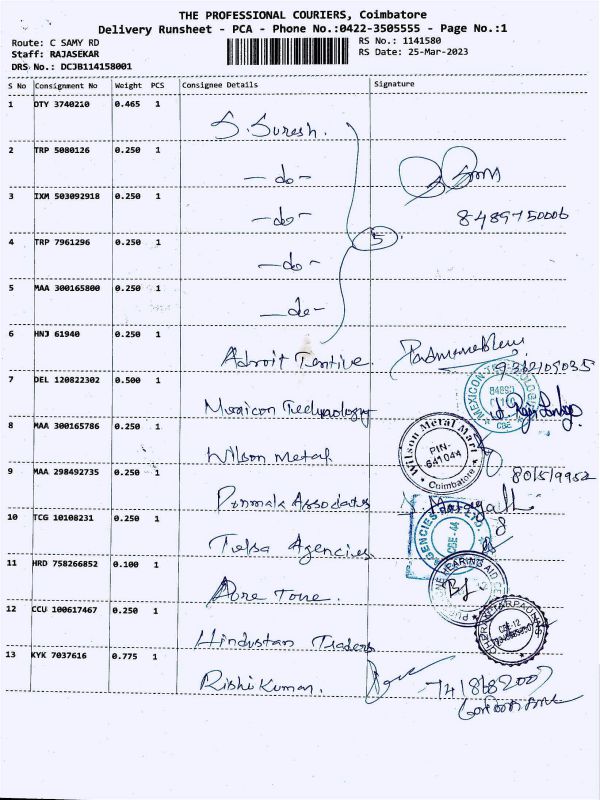 THE PROFESSIONAL COURIERS, Coimbatore
Delivery Runsheet - PCA - Phone No.:0422-3505555 - Page No.:1
Route: C SAMY RD
RS No.: 1141580
Staff: RAJASEKAR
RS Date: 25-Mar-2023
DRS No.: DCJB114158001
S No Consignment No Weight PCS Consignee Details Signature
1 DTY 3740210 0.465 1
S. Suresh.
2 TRP 5080126 0.250 1
-do-
3 IXM 503092918 0.250 1
-do-
8489750006
4 TRP 7961296 0.250 1
5
-do-
5 MAA 300165800 0.250 1
-do-
6 HNJ 61940 0.250 1
Adroit
9362109035
7 DEL 120822302 0.500 1
Mexicon Technology
MEXICON
CBE
8 MAA 300165786 0.250 1
Wilson Metal
Wilson Metal Mart
PIN-
641044
Coimbatore
9 MAA 298492735 0.250 1
Associates
10 TCG 10108231 0.250 1
Agencies
AGENCIES
CBE-44
11 HRD 758266852 0.100 1
Tone.
HEARING AID
12 CCU 100617467 0.250 1
Hindustan Traders
CBE-12
13 KYK 7037616 0.775 1
Rishi Kumar.
7418682007